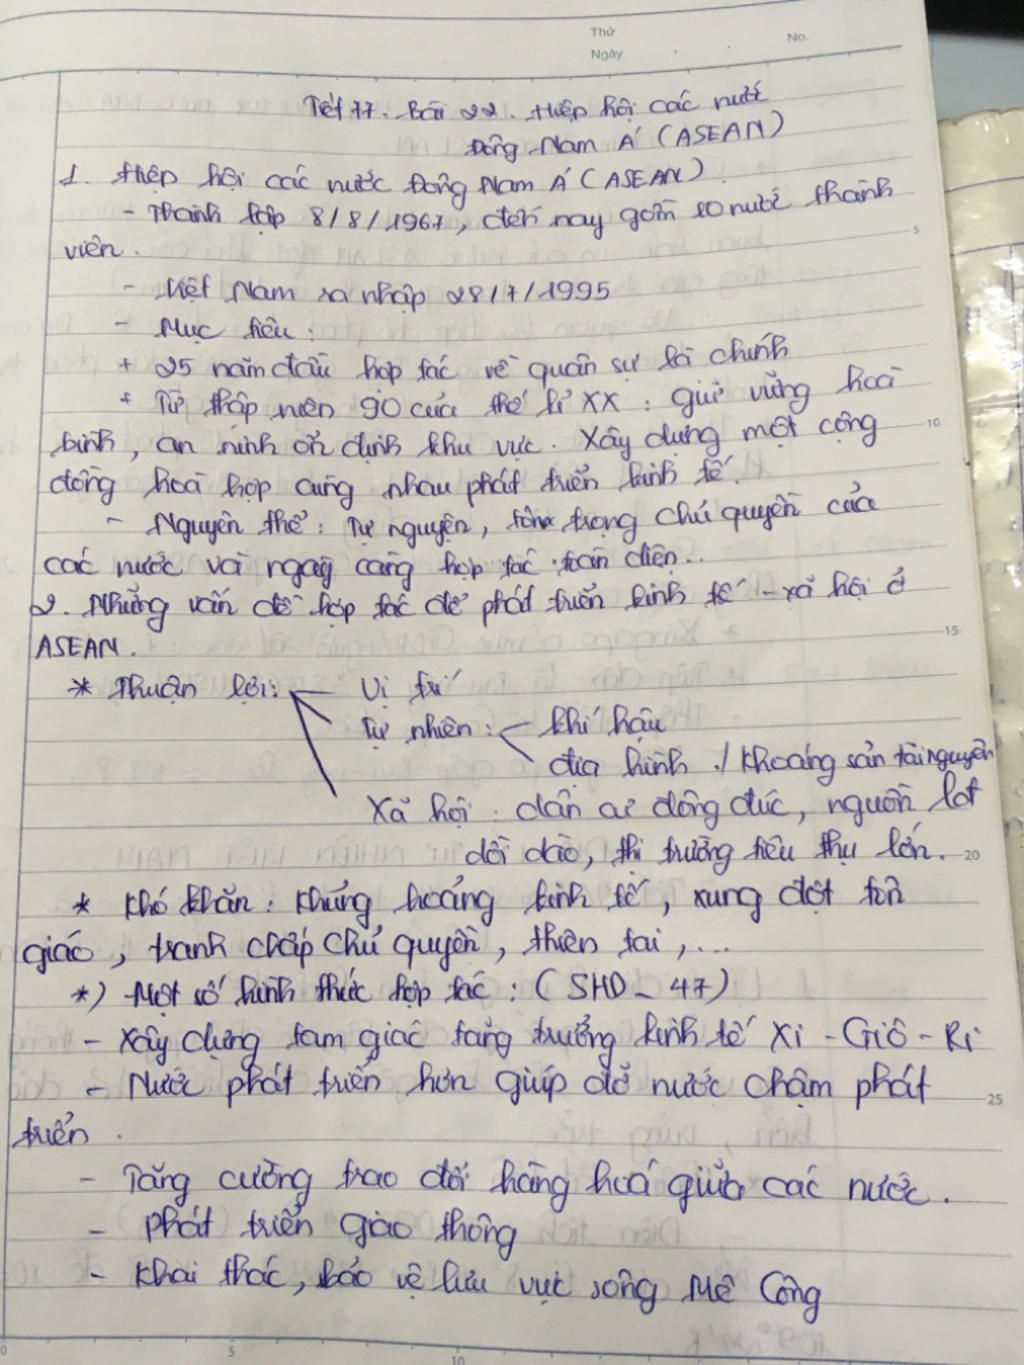 Thứ
Ngày
No.
Tiết 77. Bài 22. Hiệp hội các nước
Đông Nam Á (ASEAN)
1. Hiệp hội các nước Đông Nam Á (ASEAN).
- Thành lập 8/8/1967, đến nay gồm 10 nước thành
viên.
- Việt Nam ra nhập 28/7/1995
- Mục tiêu:
+ 25 năm đầu hợp tác về quân sự là chính
+ Từ thập niên 90 của thế kỉ XX: giữ vững hoà
bình, an ninh ổn định khu vực. Xây dựng một cộng
đồng hoà hợp cùng nhau phát triển kinh tế.
- Nguyên thể: Tự nguyện, tôn trọng chủ quyền của
các nước và ngày càng hợp tác toàn diện..
2. Những vấn đề hợp tác để phát triển kinh tế - xã hội ở
ASEAN.
* Thuận lợi: Vị trí
Tự nhiên: khí hậu
địa hình ./ Khoáng sản tài nguyên
Xã hội: dân cư đông đúc, nguồn lđ
dồi dào, thị trường tiêu thụ lớn.
* Khó khăn: Khủng hoảng kinh tế, xung đột tôn
giáo, tranh chấp chủ quyền, thiên tai,...
*) Một số hình thức hợp tác: (SHD - 47)
- Xây dựng tam giác tăng trưởng kinh tế Xi - Giô - Ri
- Nước phát triển hơn giúp đỡ nước chậm phát
triển.
- Tăng cường trao đổi hàng hoá giữa các nước.
- Phát triển giao thông
- Khai thác, bảo vệ lưu vực sông Mê Công
5
10
15
20
25
0 5 10